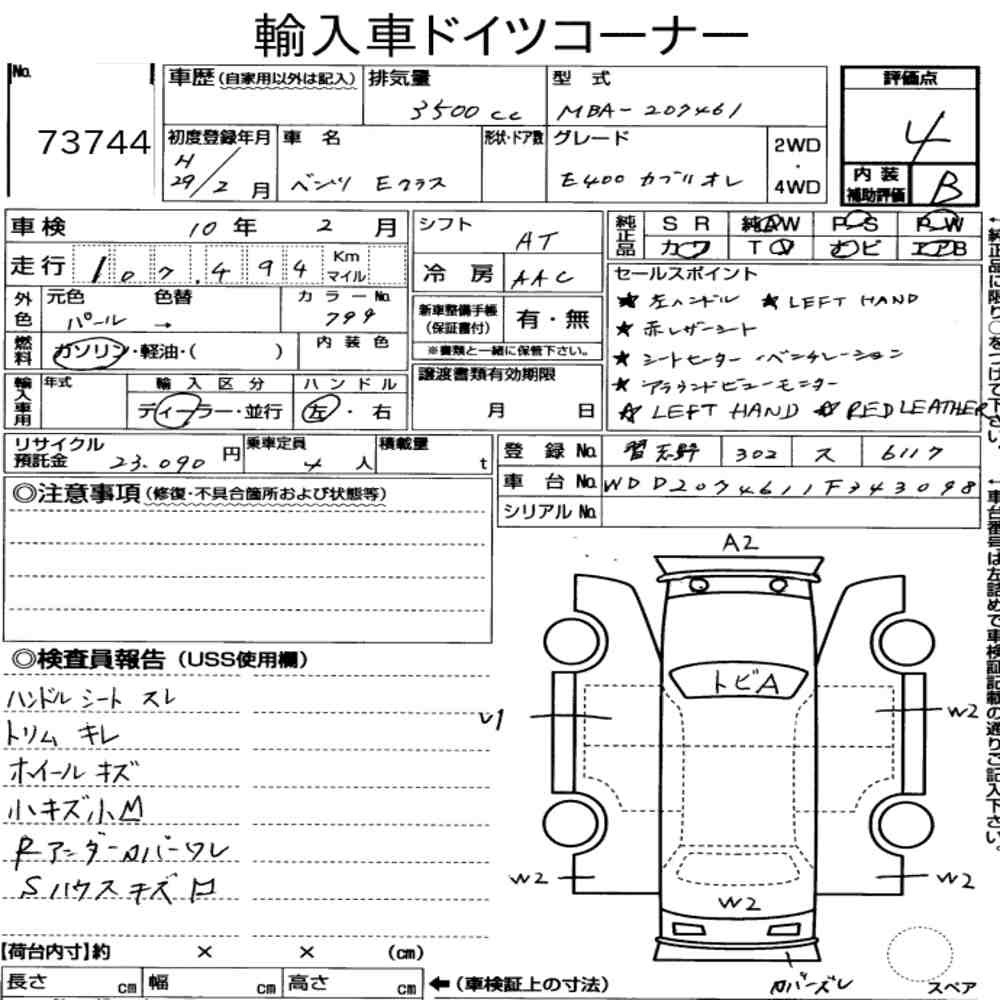 輸入車ドイツコーナー
No.
73744
車歴(自家用以外は記入)
排気量
3500 cc
型 式
MBA-207461
評価点
4
初度登録年月
H
29/2 月
車 名
ベンツ Eクラス
形状・ドア数
グレード
E400 カブリオレ
2WD
・
4WD
内 装
補助評価
B
車検 10年 2 月
走行 107,494 Km
マイル
外色
元色 色替 カラーNo.
パール → 799
燃料
ガソリン・軽油・( )
内 装 色
輸入車用
年式
輸 入 区 分
ディーラー・並行
ハ ン ド ル
左・右
シフト AT
冷 房 AAC
新車整備手帳
(保証書付)
有・無
※書類と一緒に保管下さい。
譲渡書類有効期限
月 日
純正品
S R 純AW P・S P・W
カワ TV ナビ エアB
セールスポイント
★ 左ハンドル ★ LEFT HAND
★ 赤レザーシート
★ シートヒーター・ベンチレーション
★ アラウンドビューモニター
★ LEFT HAND ★ RED LEATHER
←純正品に限り○をつけて下さい。
リサイクル
預託金 23.090 円
乗車定員
4 人
積載量
t
登 録 No. 習志野 302 ス 6117
車 台 No. WDD2074611F343098
シリアル No.
←車台番号は左詰めで車検証記載の通りご記入下さい。
◎注意事項(修復・不具合箇所および状態等)
◎検査員報告(USS使用欄)
ハンドル シート スレ
トリム キレ
ホイール キズ
小キズ小凹
Rアンダーカバーワレ
Sハウスキズ凹
A2
トビA
U1
W2
W2
W2
W2
カバーズレ
スペア
【荷台内寸】約 × × (cm)
長さ cm 幅 cm 高さ cm
←(車検証上の寸法)